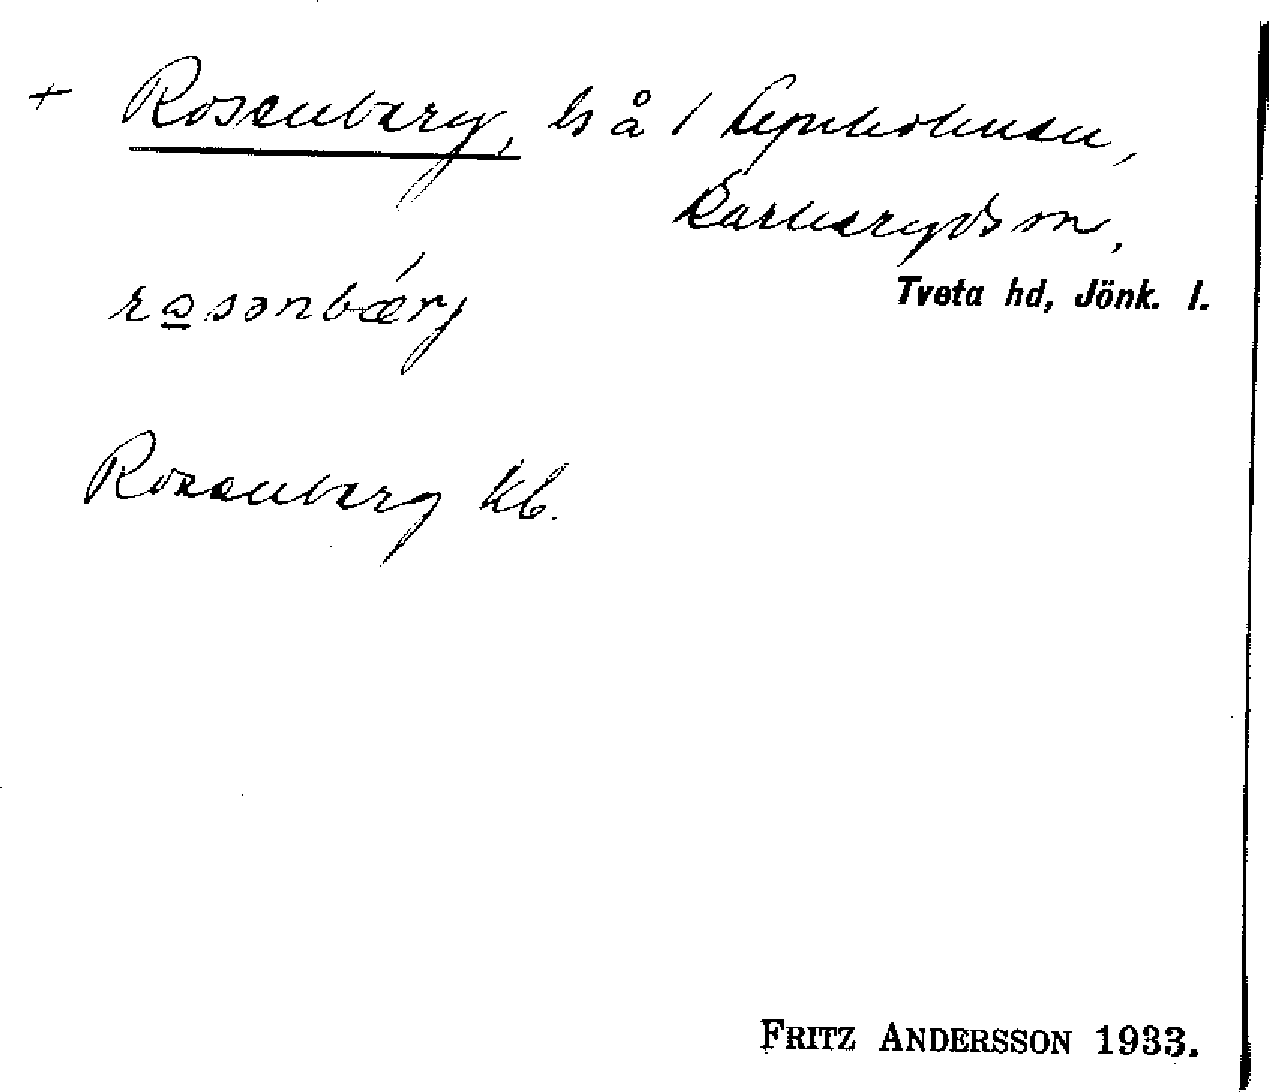 + Rosenberg, ls å 1 Lyckholmen,
Barkerydsn,
Tveta hd, Jönk. l.
rosənbærj
Rosenberg kb.
FRITZ ANDERSSON 1933.